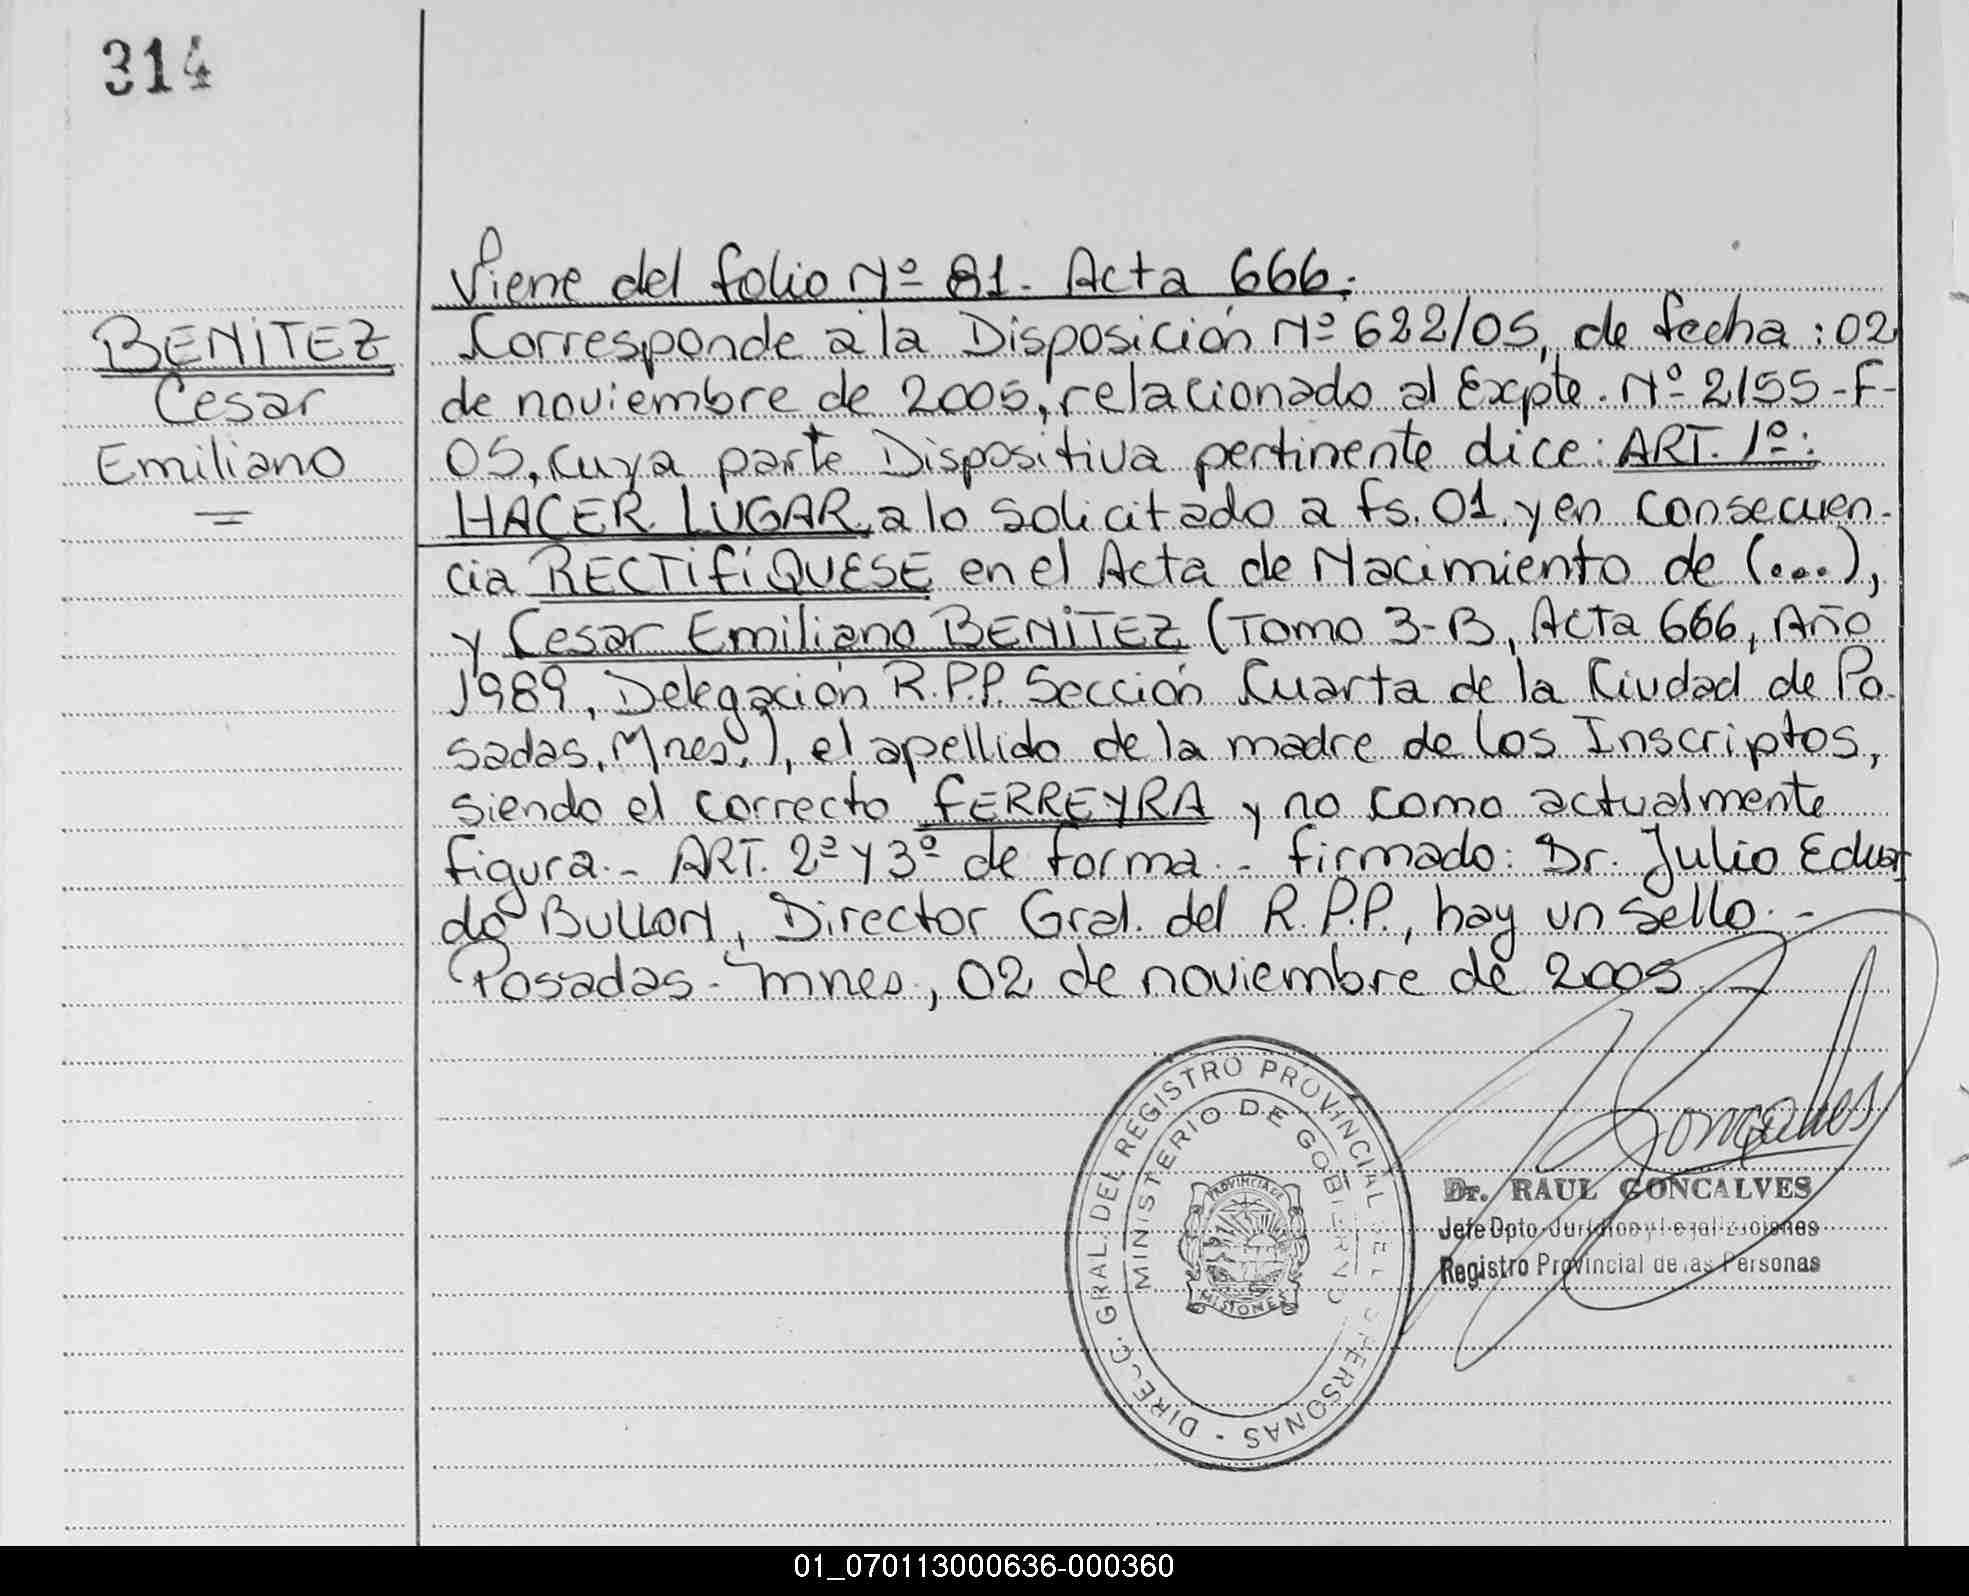 314
Viene del folio Nº 81. Acta 666.
BENITEZ
Cesar
Emiliano
Corresponde a la Disposición Nº 622/05, de fecha: 02
de noviembre de 2005, relacionado al Expte. Nº 2155-F-
05, cuya parte Dispositiva pertinente dice: ART. 1º:
HACER LUGAR a lo solicitado a fs. 01 y en consecuen-
cia RECTIFÍQUESE en el Acta de Nacimiento de (...),
y Cesar Emiliano BENITEZ (Tomo 3-B, Acta 666, Año
1989, Delegación R.P.P. Sección Cuarta de la Ciudad de Po-
sadas, Mnes.), el apellido de la madre de los Inscriptos,
siendo el correcto FERREYRA y no como actualmente
figura.- ART. 2º y 3º de forma.- Firmado: Dr. Julio Eduar-
do BULLON, Director Gral. del R.P.P., hay un sello.-
Posadas- Mnes., 02 de noviembre de 2005
DIRECC. GRAL. DEL REGISTRO PROVINCIAL DE L S PERSONAS
MINISTERIO DE GOBIERNO
PROVINCIA DE
MISIONES
Goncalves
Dr. RAUL GONCALVES
Jefe Dpto. Jurídico y Legalizaciones
Registro Provincial de las Personas
01_070113000636-000360